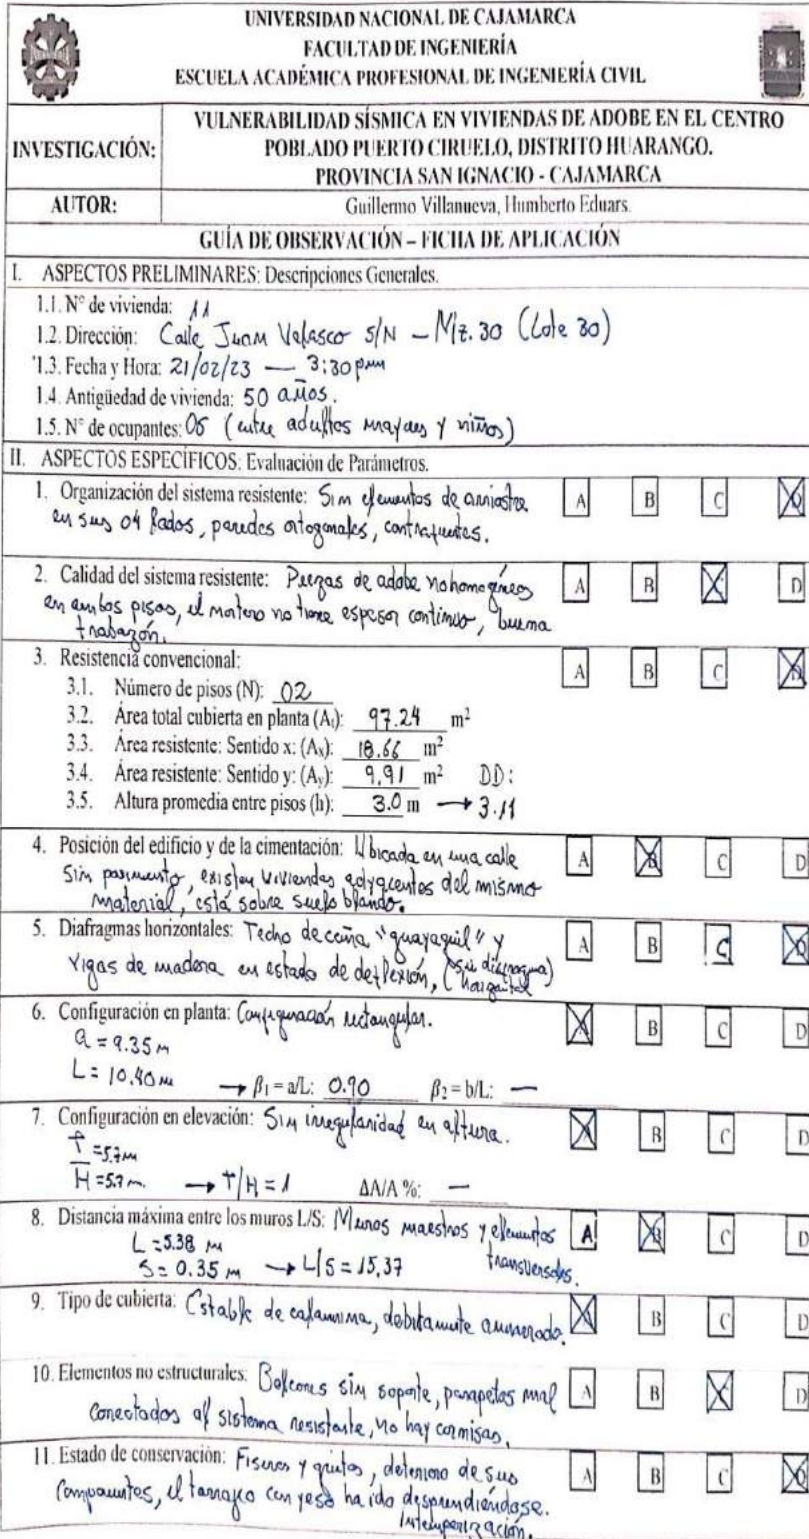 UNIVERSIDAD NACIONAL DE CAJAMARCA
FACULTAD DE INGENIERÍA
ESCUELA ACADÉMICA PROFESIONAL DE INGENIERÍA CIVIL
INVESTIGACIÓN:
VULNERABILIDAD SÍSMICA EN VIVIENDAS DE ADOBE EN EL CENTRO
POBLADO PUERTO CIRUELO, DISTRITO HUARANGO.
PROVINCIA SAN IGNACIO - CAJAMARCA
AUTOR: Guillermo Villanueva, Humberto Eduars.
GUÍA DE OBSERVACIÓN – FICHA DE APLICACIÓN
I. ASPECTOS PRELIMINARES: Descripciones Generales.
1.1. N° de vivienda: 11
1.2. Dirección: Calle Juan Velasco S/N – Mz. 30 (Lote 30)
1.3. Fecha y Hora: 21/02/23 — 3:30 pm
1.4. Antigüedad de vivienda: 50 años.
1.5. N° de ocupantes: (entre adultos mayores y niños)
II. ASPECTOS ESPECÍFICOS: Evaluación de Parámetros.
1. Organización del sistema resistente: Sin elementos de arriostre A B C D
en sus 04 lados, paredes ortogonales, contrafuertes.
2. Calidad del sistema resistente: Piezas de adobe no homogéneos A B C D
en ambos pisos, el mortero no tiene espesor continuo, buena
trabazón.
3. Resistencia convencional: A B C D
3.1. Número de pisos (N): 02
3.2. Área total cubierta en planta (At): 97.24 m²
3.3. Área resistente: Sentido x: (Ax): 18.66 m²
3.4. Área resistente: Sentido y: (Ay): 9,91 m² DD:
3.5. Altura promedia entre pisos (h): 3.0 m → 3.11
4. Posición del edificio y de la cimentación: Ubicada en una calle A B C D
sin pavimento, existen viviendas adyacentes del mismo
material, está sobre suelo blando.
5. Diafragmas horizontales: Techo de caña "guayaquil" y A B C D
vigas de madera en estado de deflexión, (sin diafragma
horizontal)
6. Configuración en planta: Configuración rectangular. A B C D
a = 9.35 m
L = 10.40 m → β1 = a/L: 0.90 β2 = b/L: —
7. Configuración en elevación: Sin irregularidad en altura. A B C D
T = 5.7 m
H = 5.7 m. → T/H = 1 ΔA/A %: —
8. Distancia máxima entre los muros L/S: Muros maestros y elementos A B C D
transversales.
L = 5.38 m
S = 0.35 m → L/S = 15,37
9. Tipo de cubierta: Estable de calamina, debitamente amarrado. A B C D
10. Elementos no estructurales: Balcones sin soporte, parapetos mal A B C D
conectados al sistema resistente, no hay cornisas.
11. Estado de conservación: Fisuras y grietas, deterioro de sus A B C D
componentes, el tarrajeo con yeso ha ido desprendiéndose.
Intemperización.